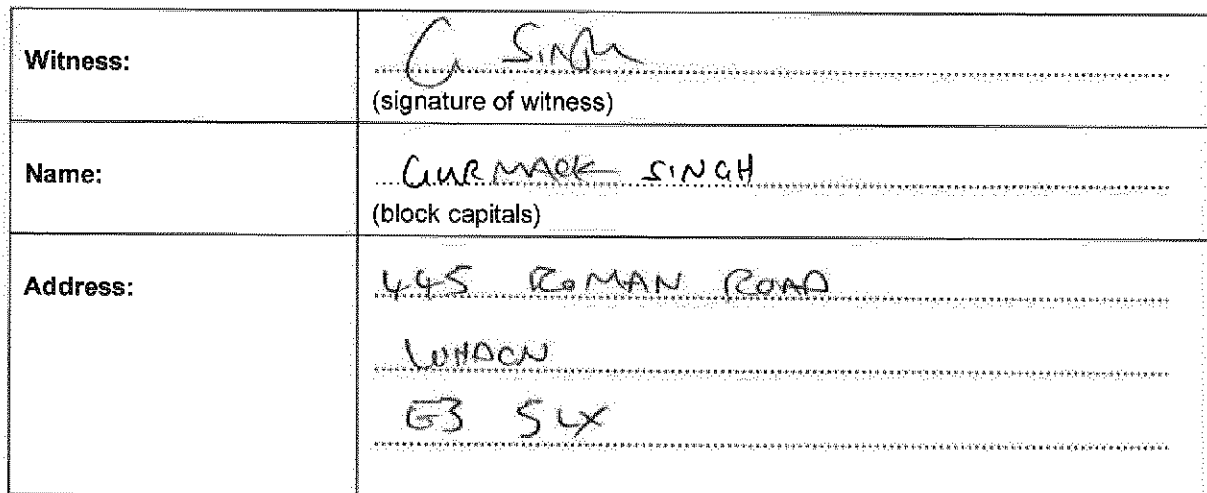 Witness:
G Singh
(signature of witness)
Name:
GURMACK SINGH
(block capitals)
Address:
445 ROMAN ROAD
LONDON
E3 5LX